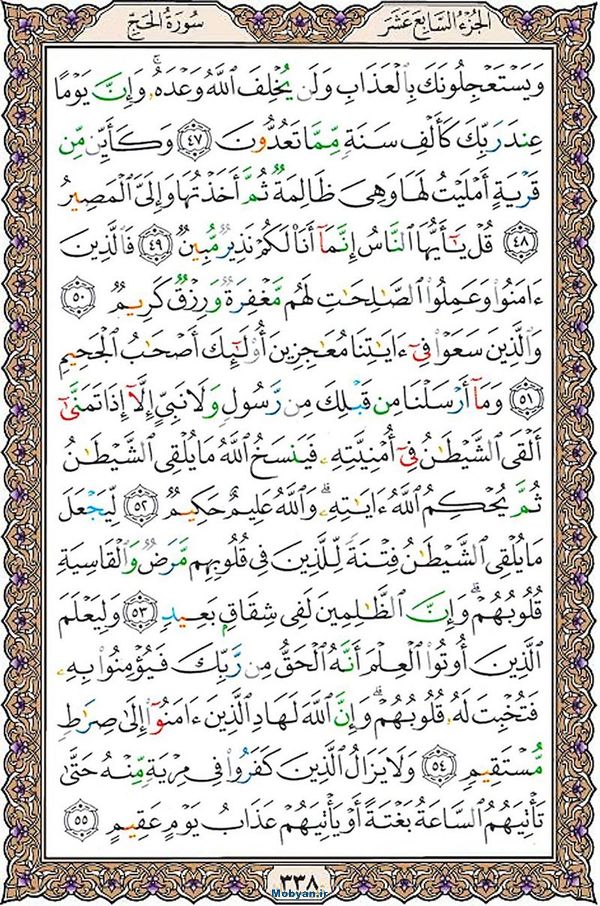 الجزء السابع عشر
سورة الحج
وَيَسْتَعْجِلُونَكَ بِٱلْعَذَابِ وَلَن يُخْلِفَ ٱللَّهُ وَعْدَهُۥ ۚ وَإِنَّ يَوْمًا
عِندَ رَبِّكَ كَأَلْفِ سَنَةٍ مِّمَّا تَعُدُّونَ ٤٧ وَكَأَيِّن مِّن
قَرْيَةٍ أَمْلَيْتُ لَهَا وَهِىَ ظَالِمَةٌ ثُمَّ أَخَذْتُهَا وَإِلَىَّ ٱلْمَصِيرُ
٤٨ قُلْ يَـٰٓأَيُّهَا ٱلنَّاسُ إِنَّمَآ أَنَا۠ لَكُمْ نَذِيرٌ مُّبِينٌ ٤٩ فَٱلَّذِينَ
ءَامَنُوا۟ وَعَمِلُوا۟ ٱلصَّـٰلِحَـٰتِ لَهُم مَّغْفِرَةٌ وَرِزْقٌ كَرِيمٌ ٥٠
وَٱلَّذِينَ سَعَوْا۟ فِىٓ ءَايَـٰتِنَا مُعَـٰجِزِينَ أُو۟لَـٰٓئِكَ أَصْحَـٰبُ ٱلْجَحِيمِ
٥١ وَمَآ أَرْسَلْنَا مِن قَبْلِكَ مِن رَّسُولٍ وَلَا نَبِىٍّ إِلَّآ إِذَا تَمَنَّىٰٓ
أَلْقَى ٱلشَّيْطَـٰنُ فِىٓ أُمْنِيَّتِهِۦ فَيَنسَخُ ٱللَّهُ مَا يُلْقِى ٱلشَّيْطَـٰنُ
ثُمَّ يُحْكِمُ ٱللَّهُ ءَايَـٰتِهِۦ ۗ وَٱللَّهُ عَلِيمٌ حَكِيمٌ ٥٢ لِّيَجْعَلَ
مَا يُلْقِى ٱلشَّيْطَـٰنُ فِتْنَةً لِّلَّذِينَ فِى قُلُوبِهِم مَّرَضٌ وَٱلْقَاسِيَةِ
قُلُوبُهُمْ ۗ وَإِنَّ ٱلظَّـٰلِمِينَ لَفِى شِقَاقٍۭ بَعِيدٍ ٥٣ وَلِيَعْلَمَ
ٱلَّذِينَ أُوتُوا۟ ٱلْعِلْمَ أَنَّهُ ٱلْحَقُّ مِن رَّبِّكَ فَيُؤْمِنُوا۟ بِهِۦ
فَتُخْبِتَ لَهُۥ قُلُوبُهُمْ ۗ وَإِنَّ ٱللَّهَ لَهَادِ ٱلَّذِينَ ءَامَنُوٓا۟ إِلَىٰ صِرَٰطٍ
مُّسْتَقِيمٍ ٥٤ وَلَا يَزَالُ ٱلَّذِينَ كَفَرُوا۟ فِى مِرْيَةٍ مِّنْهُ حَتَّىٰ
تَأْتِيَهُمُ ٱلسَّاعَةُ بَغْتَةً أَوْ يَأْتِيَهُمْ عَذَابُ يَوْمٍ عَقِيمٍ ٥٥
٣٣٨
Mobyan.ir